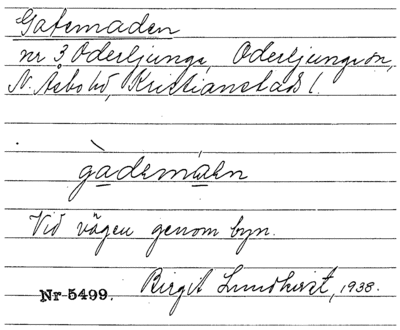 Gatemaden
nr 3 Oderljunga, Oderljunga sn,
N. Åsbo hd, Kristianstads l.
gàdemáen
Vid vägen genom byn.
Nr 5499. Birgit Lundkvist, 1938.